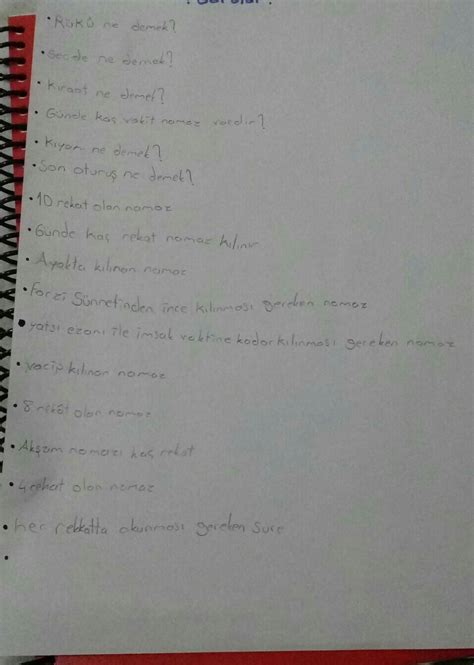 • Rükû ne demek?
• Secde ne demek?
• Kıraat ne demek?
• Günde kaç vakit namaz vardır?
• Kıyam ne demek?
• Son oturuş ne demek?
• 10 rekat olan namaz
• Günde kaç rekat namaz kılınır
• Ayakta kılınan namaz
• Farzı Sünnetinden önce kılınması gereken namaz
• yatsı ezanı ile imsak vaktine kadar kılınması gereken namaz
• vacip kılınan namaz
• 8 rekât olan namaz
• Akşam namazı kaç rekat
• 4 rekat olan namaz
• her rekkatta okunması gereken sure
•